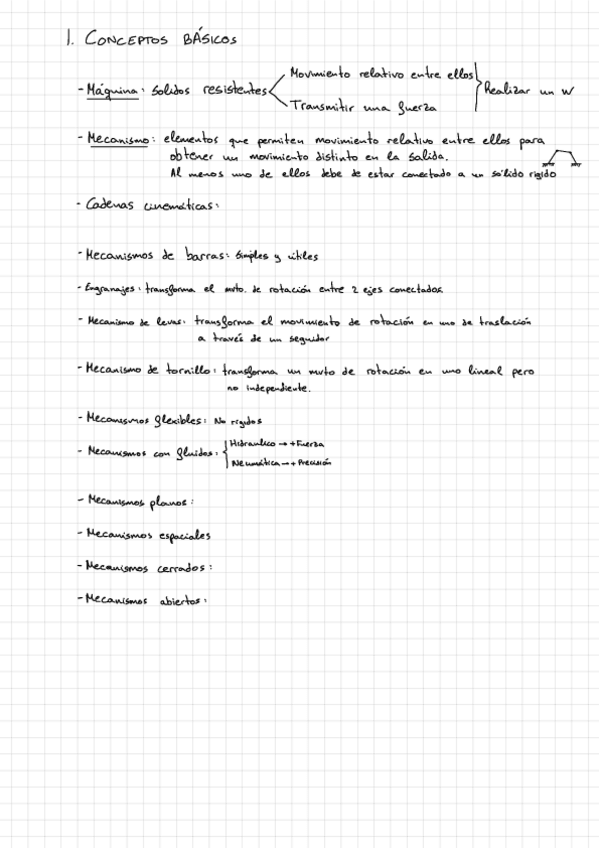 1. CONCEPTOS BÁSICOS
- Máquina: solidos resistentes
Movimiento relativo entre ellos
Transmitir una fuerza
Realizar un W
- Mecanismo: elementos que permiten movimiento relativo entre ellos para
obtener un movimiento distinto en la salida.
Al menos uno de ellos debe de estar conectado a un sólido rígido
- Cadenas cinemáticas:
- Mecanismos de barras: simples y útiles
- Engranajes: transforma el mvto. de rotación entre 2 ejes conectados
- Mecanismo de levas: transforma el movimiento de rotación en uno de traslación
a través de un seguidor
- Mecanismo de tornillo: transforma un mvto de rotación en uno lineal pero
no independiente.
- Mecanismos flexibles: No rígidos
- Mecanismos con fluidos:
Hidraulico → + Fuerza
Neumática → + Precisión
- Mecanismos planos:
- Mecanismos espaciales
- Mecanismos cerrados:
- Mecanismos abiertos: